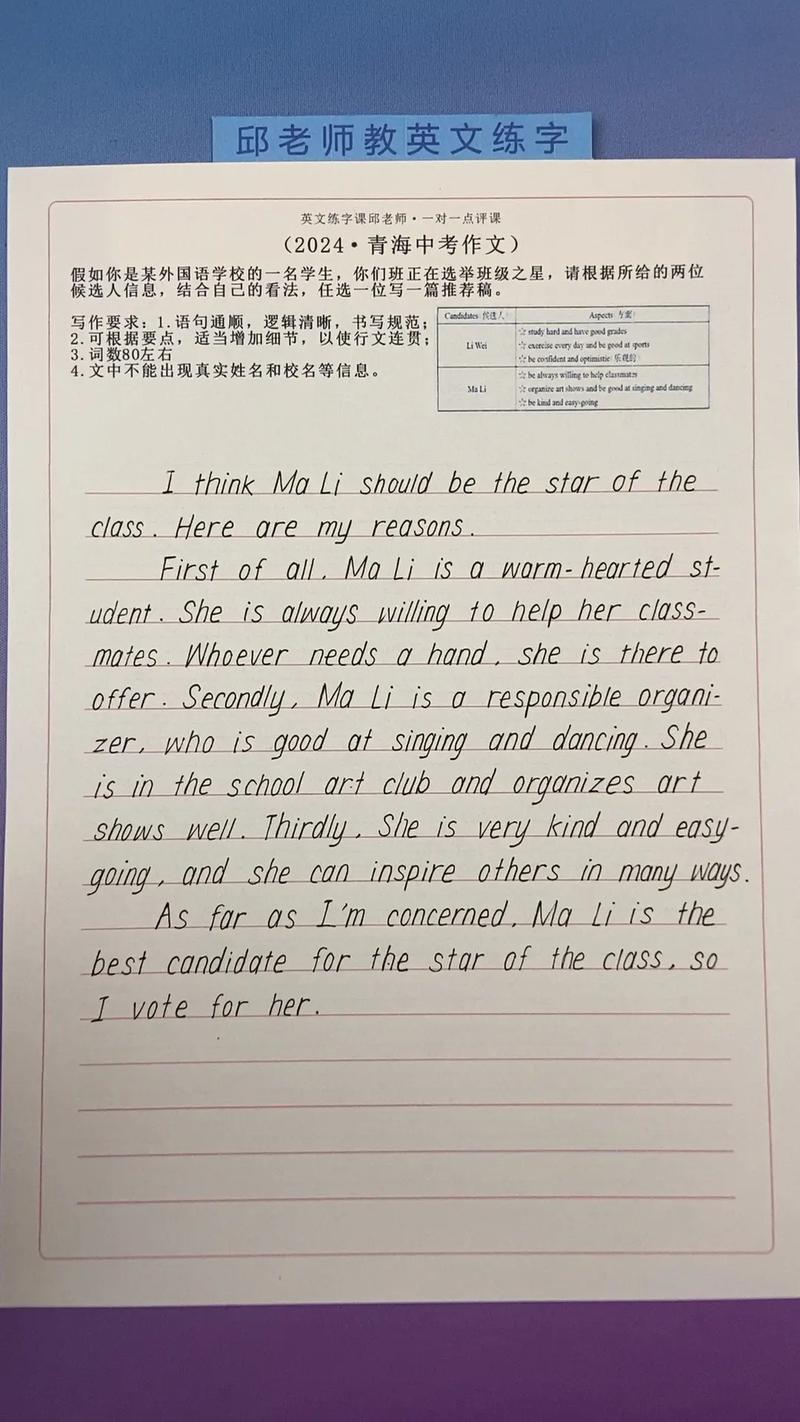 邱老师教英文练字
英文练字课邱老师·一对一点评课
（2024·青海中考作文）
假如你是某外国语学校的一名学生，你们班正在选举班级之星，请根据所给的两位
候选人信息，结合自己的看法，任选一位写一篇推荐稿。
写作要求：1.语句通顺，逻辑清晰，书写规范；
2.可根据要点，适当增加细节，以使行文连贯；
3.词数80左右
4.文中不能出现真实姓名和校名等信息。
Candidates（候选人） Aspects（方面）
Li Wei
☆ study hard and have good grades
☆ exercise every day and be good at sports
☆ be confident and optimistic（乐观的）
Ma Li
☆ be always willing to help classmates
☆ organize art shows and be good at singing and dancing
☆ be kind and easy-going
I think Ma Li should be the star of the
class. Here are my reasons.
First of all, Ma Li is a warm-hearted st-
udent. She is always willing to help her class-
mates. Whoever needs a hand, she is there to
offer. Secondly, Ma Li is a responsible organi-
zer, who is good at singing and dancing. She
is in the school art club and organizes art
shows well. Thirdly, She is very kind and easy-
going, and she can inspire others in many ways.
As far as I'm concerned, Ma Li is the
best candidate for the star of the class, so
I vote for her.